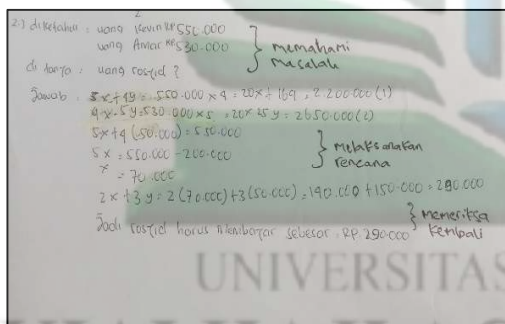 2.) diketahui : uang Kevin RP 550.000
uang Amar RP 530.000
memahami
masalah
di tanya : uang rosyid ?
Jawab : 5x+4y = 550.000 x 4 = 20x + 16y = 2.200.000 (1)
4x+5y = 530.000 x 5 = 20x + 25y = 2650.000 (2)
5x + 4 (50.000) = 550.000
5x = 550.000 - 200.000
x = 70.000
melaksanakan
rencana
2x + 3y = 2 (70.000) + 3 (50.000) = 140.000 + 150.000 = 290.000
Jadi rosyid harus Membayar sebesar RP. 290.000
memeriksa
kembali
UNIVERSITAS